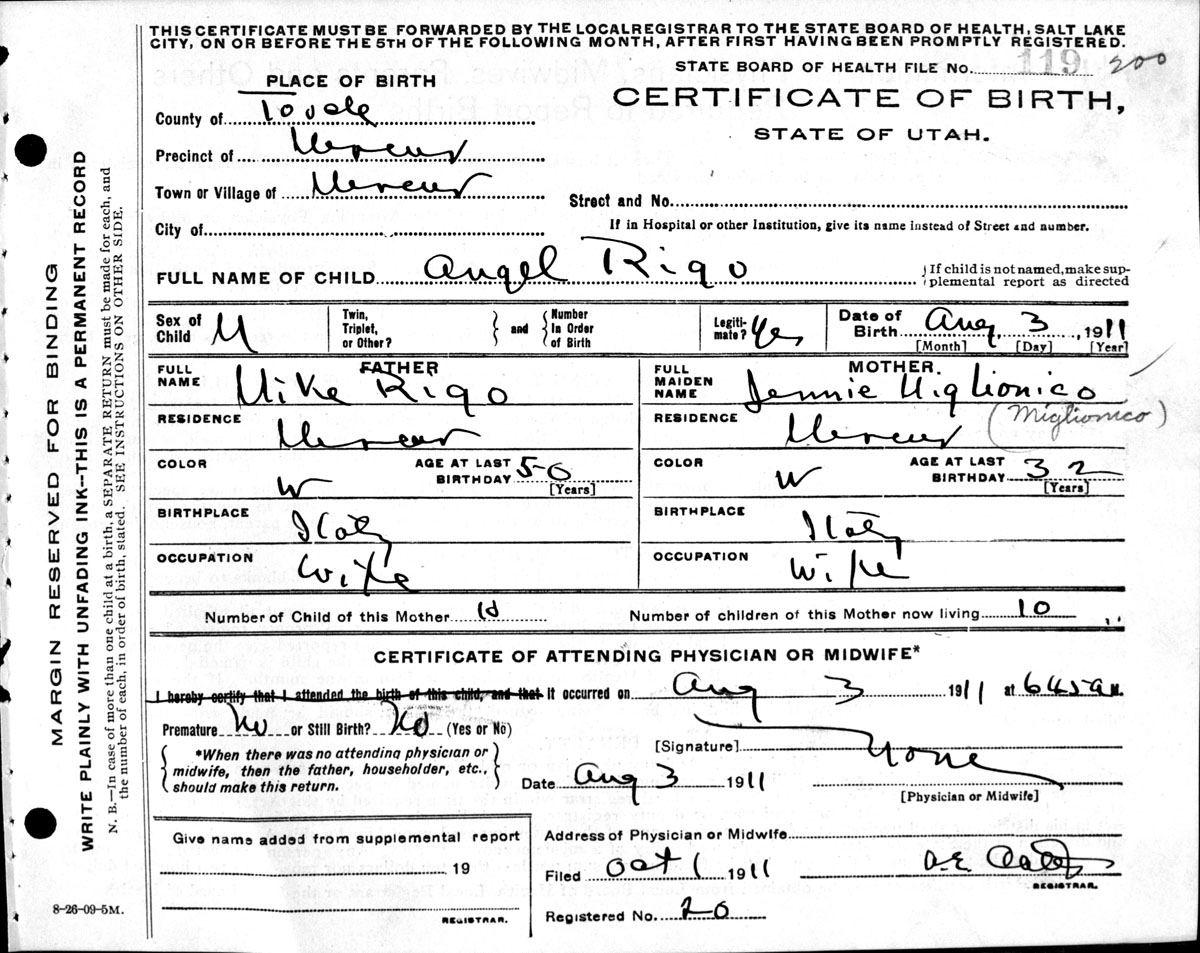 THIS CERTIFICATE MUST BE FORWARDED BY THE LOCAL REGISTRAR TO THE STATE BOARD OF HEALTH, SALT LAKE
CITY, ON OR BEFORE THE 5TH OF THE FOLLOWING MONTH, AFTER FIRST HAVING BEEN PROMPTLY REGISTERED.
STATE BOARD OF HEALTH FILE No. 119 200
PLACE OF BIRTH
CERTIFICATE OF BIRTH,
STATE OF UTAH.
County of Tooele
Precinct of Mercur
Town or Village of Mercur
Street and No.
City of
If in Hospital or other Institution, give its name instead of Street and number.
FULL NAME OF CHILD Angel Rigo
{If child is not named, make sup-
plemental report as directed
Sex of Child M
Twin, Triplet, or Other? } and { Number In Order of Birth
Legiti-mate? Yes
Date of Birth Aug 3, 1911
[Month] [Day] [Year]
FATHER
FULL NAME Mike Rigo
RESIDENCE Mercur
COLOR W AGE AT LAST BIRTHDAY 50 [Years]
BIRTHPLACE Italy
OCCUPATION Wife
MOTHER.
FULL MAIDEN NAME Jennie Miglionico
(Miglionico)
RESIDENCE Mercur
COLOR W AGE AT LAST BIRTHDAY 32 [Years]
BIRTHPLACE Italy
OCCUPATION Wife
Number of Child of this Mother 10 Number of children of this Mother now living 10
CERTIFICATE OF ATTENDING PHYSICIAN OR MIDWIFE*
I hereby certify that I attended the birth of this child, and that it occurred on Aug 3 1911 at 645 am.
Premature No or Still Birth? No (Yes or No)
{ *When there was no attending physician or
midwife, then the father, householder, etc.,
should make this return. }
[Signature] None
Date Aug 3 1911
[Physician or Midwife]
Give name added from supplemental report
19
REGISTRAR.
Address of Physician or Midwife
Filed Oct 1 1911 A.E.
REGISTRAR.
Registered No. 20
8-26-09-5M.
MARGIN RESERVED FOR BINDING
WRITE PLAINLY WITH UNFADING INK--THIS IS A PERMANENT RECORD
N. B.—In case of more than one child at a birth, a SEPARATE RETURN must be made for each, and
the number of each, in order of birth, stated. SEE INSTRUCTIONS ON OTHER SIDE.